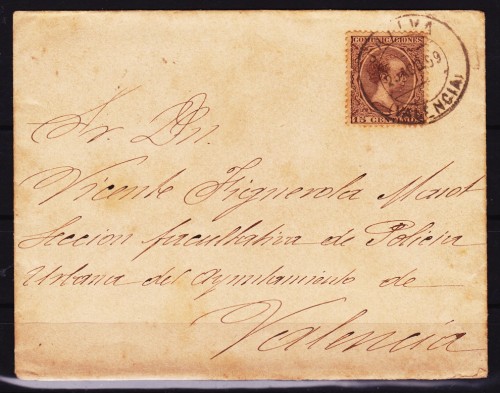 COMUNICACIONES
15 CENT
Sr. Dn.
Vicente Figuerola Marot
Seccion facultativa de Policia
Urbana del Ayuntamiento de
Valencia